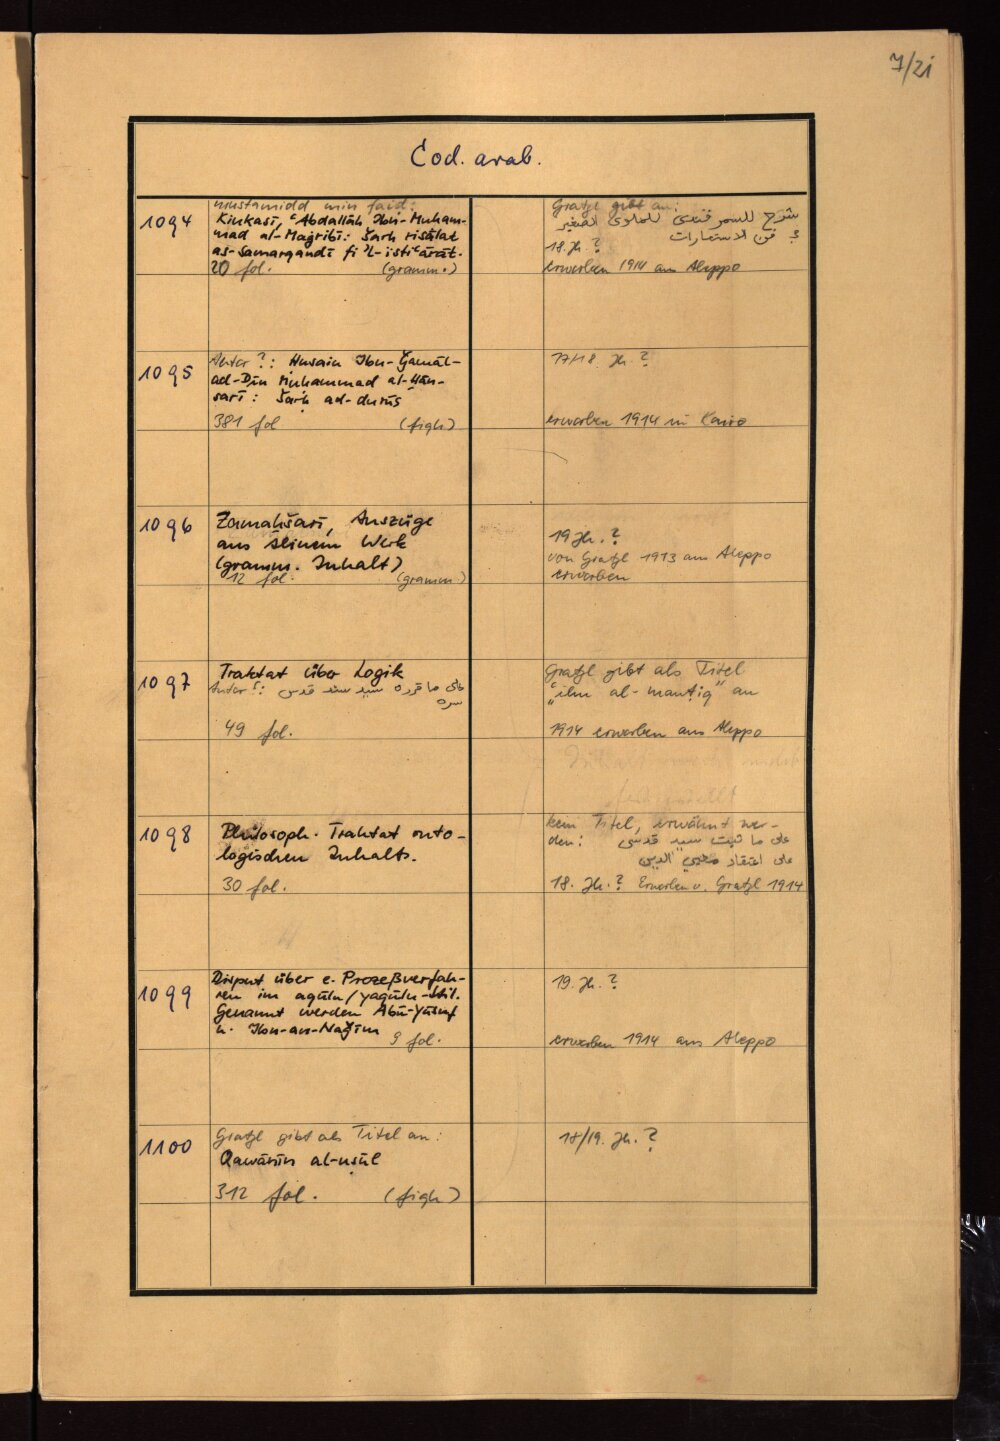 7/21
Cod. arab.
1094
mustamidd min faid:
Kinkasī, ʿAbdallāh Ibn-Muham-
mad al-Maġribī: Šarḥ risālat
as-Samarqandī fi 'l-istiʿārāt.
20 fol. (gramm.)
Gratzl gibt an:
شرح للسمرقندى للملوى الصغير
في فن الاستعارات
18. Jh. ?
erworben 1914 aus Aleppo
1095
Autor ?: Ḥusain Ibn-Ǧamāl-
ad-Dīn Muḥammad al-Ḫān-
sarī: Šarḥ ad-durūs
381 fol (fiqh)
17/18. Jh. ?
erworben 1914 in Kairo
1096
Zamaḫšarī, Auszüge
aus seinem Werk
(gramm. Inhalt)
12 fol. (gramm.)
19 Jh. ?
von Gratzl 1913 aus Aleppo
erworben
1097
Traktat über Logik
Autor ?: على ما قرره سيد سند قدس
سره
49 fol.
Gratzl gibt als Titel
"ʿilm al-manṭiq" an
1914 erworben aus Aleppo
1098
Philosoph. Traktat onto-
logischen Inhalts.
30 fol.
kein Titel, erwähnt wer-
den: على ما ثبت سيد قدسى
على اعتقاد محيي الدين
18. Jh. ? Erworben v. Gratzl 1914
1099
Disput über e. Prozeßverfah-
ren im aqūlu/yaqūlu-Stil.
Genannt werden Abū-Yūsuf
u. Ibn-an-Naǧīm
9 fol.
19. Jh. ?
erworben 1914 aus Aleppo
1100
Gratzl gibt als Titel an:
Qawānīn al-uṣūl
312 fol. (fiqh)
18/19. Jh. ?